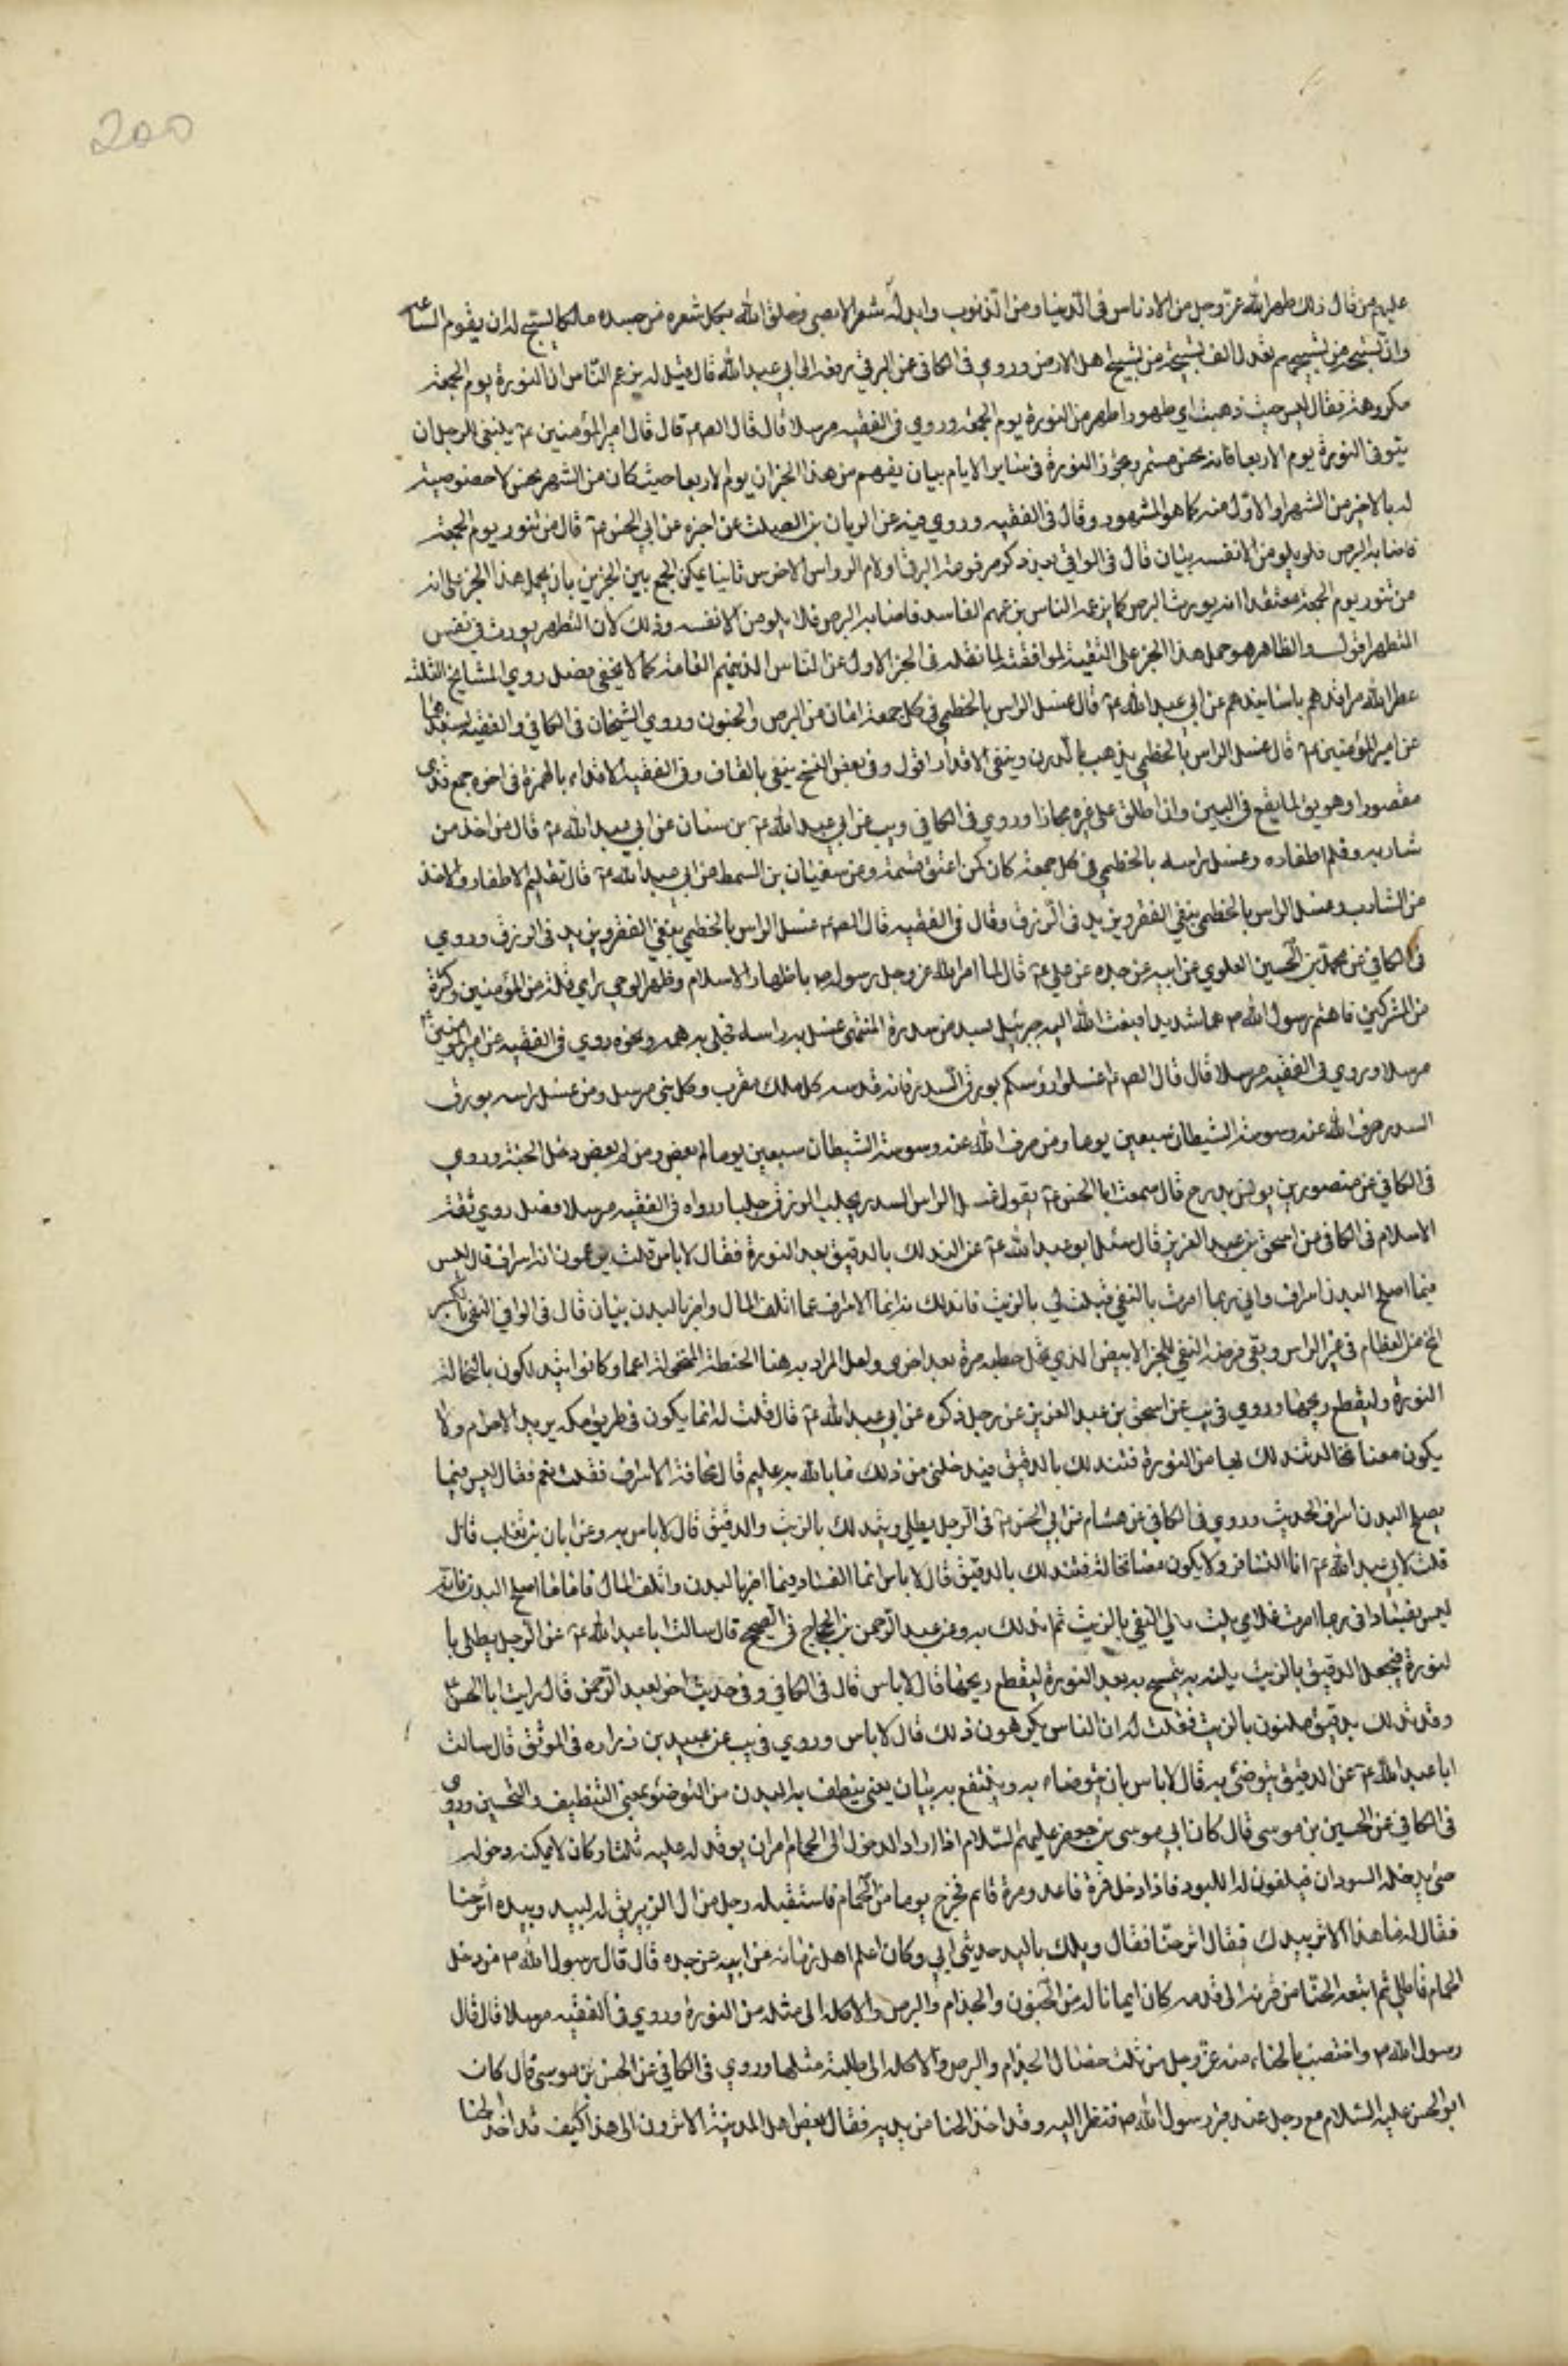 200
عليهم من قال ذلك طهره الله عز وجل من الادناس فى الدنيا ومن الذنوب وابدله شعرا لا يعصى وخلق الله بكل شعره من جسده ملكا يسبح له الى ان يقوم الساعه
وان تسبيحه من تسبيحهم يعدل الف تسبيحة من تسبيح اهل الارض وروي فى الكافى عن البرقي رفعه الى ابي عبد الله قال قيل له يزعم الناس ان النورة يوم الجمعة
مكروهة فقال ليس حيث ذهبت اي طهور اطهر من النورة يوم الجمعة وروي فى الفقيه مرسلا قال قال الص ع قال قال امير المؤمنين ع ينبغى للرجل ان
يتوقى النورة يوم الاربعا فانه نحس مستمر ويجوز النورة فى ساير الايام بيان يفهم من هذا الخبر ان يوم الاربعا حيث كان من الشهر نحس لا خصوصية
له بالاخير من الشهر او الاول منه كما هو المشهور وقال فى الفقيه وروي فيه عن الريان بن الصلت عن اخبره عن ابي الحسن ع قال من تنور يوم الجمعة
فاصابه البرص فلا يلومن الا نفسه بيان قال فى الوافي بعد ذكر مرفوعة البرقي اولا م الرواس الاخرس ثانيا يمكن الجمع بين الخبرين بان يحمل هذا الخبر على انه
من تنور يوم الجمعة معتقدا انه يورث البرص كما يزعمه الناس بزعمهم الفاسد فاصابه البرص فلا يلومن الا نفسه وذلك لان التطير يورث فى نفس
المتطير اقول والظاهر هو حمل هذا الخبر على التقية لموافقته لما نقله فى الخبر الاول عن الناس الذينهم العامة كما لا يخفى فصل روي المشايخ الثلثة
عطر الله مراقدهم باسانيدهم عن ابي عبد الله ع قال غسل الراس بالخطمي فى كل جمعة امان من البرص والجنون وروي الشيخان فى الكافي والفقيه بسندهما
عن امير المؤمنين ع قال غسل الراس بالخطمي يذهب بالدرن وينقى الاقذار اقول وفى بعض النسخ ينقى بالقاف وفى الفقيه الاقذاء بالهمزة فى اخره جمع قذى
مقصورا وهو يق لما يقع فى العين وان اطلق على غيره مجازا وروي فى الكافي ويب عن ابي عبد الله ع بن سنان عن ابي عبد الله ع قال من اخذ من
شاربه وقلم اظفاره وغسل راسه بالخطمي فى كل جمعة كان كمن اعتق نسمة وعن سفيان بن السمط عن ابي عبد الله ع قال تقليم الاظفار والاخذ
من الشارب وغسل الراس بالخطمى ينفي الفقر ويزيد فى الرزق وقال فى الفقيه قال الص ع غسل الراس بالخطمي ينفى الفقر ويزيد فى الرزق وروي
فى الكافي عن محمد بن الحسين العلوي عن ابيه عن جده عن علي ع قال لما امر الله عز وجل رسوله ص باظهار الاسلام وظهر الوحي راى قلة من المؤمنين وكثرة
من المشركين فاهتم رسول الله ص هما شديدا فبعث الله اليه جبرئيل بسدر من سدرة المنتهى فغسل به راسه فجلى به همه ونحوه روي فى الفقيه عن امير المؤمنين ع
مرسلا وروي فى الفقيه مرسلا قال قال الص ع اغسلوا رؤسكم بورق السدر فانه قدسه كل ملك مقرب وكل نبى مرسل ومن غسل راسه بورق
السدر صرف الله عنه وسوسة الشيطان سبعين يوما ومن صرف الله عنه وسوسة الشيطان سبعين يوما لم يعص ومن لم يعص دخل الجنة وروي
فى الكافي عن منصور بن يونس بزرج قال سمعت ابا الحسن ع يقول غسل الراس بالسدر يجلب الرزق جلبا ورواه فى الفقيه مرسلا فصل روي ثقة
الاسلام فى الكافي عن اسحق بن عبد العزيز قال سئل ابو عبد الله ع عن التدلك بالدقيق بعد النورة فقال لا باس قلت يزعمون انه اسراف قال ليس
فيما اصلح البدن اسراف واني ربما امرت بالنقي فيلت لي بالزيت فاتدلك به انما الاسراف فيما اتلف المال واضر بالبدن بيان قال فى الوافي النقى بالكسر
المخ من العظام فى غير الراس وبقى فرضه النقي للخبز الابيض الذي نخل حنطه مرة بعد اخرى ولعل المراد به هنا الحنطة المنخولة ناعما وكانوا يتدلكون بالنخالة
النورة وليقطع ريحها وروي فى يب عن اسحق بن عبد العزيز عن رجل ذكره عن ابي عبد الله ع قال قلت له انما يكون فى طريق مكه يريد الاحرام ولا
يكون معنا نخالة نتدلك بها من النورة فنتدلك بالدقيق فيدخلنى من ذلك ما الله به عليم قال مخافة الاسراف فقلت نعم فقال ليس فيما
يصلح البدن اسراف الحديث وروي فى الكافي عن هشام عن ابي الحسن ع فى الرجل يطلي ويتدلك بالزيت والدقيق قال لا باس به وعن ابان بن تغلب قال
قلت لابي عبد الله ع انا لنسافر ولا يكون معنا نخالة فنتدلك بالدقيق قال لا باس انما الفساد فيما اضر بالبدن واتلف المال فاما ما اصلح البدن فانه
ليس بفساد انى ربما امرت غلامي يلت لي النقي بالزيت ثم اتدلك به وعن عبد الرحمن بن الحجاج فى الصحيح قال سالت ابا عبد الله ع عن الرجل يطلي با
لنورة فيجعل الدقيق بالزيت يلته به يتمسح به بعد النورة ليقطع ريحها قال لا باس قال فى الكافي وفى حديث اخر لعبد الرحمن قال رايت ابا الحسن ع
وقد تدلك بدقيق ملتوت بالزيت فقلت له ان الناس يكرهون ذلك قال لا باس وروي فى يب عن عبيد بن زراره فى الموثق قال سالت
ابا عبد الله ع عن الدقيق يتوضئ به قال لا باس بان يتوضاء به وينتفع به بيان يعنى ينظف به البدن من التوضئ بمعنى التنظيف والتحسين وروي
فى الكافي عن الحسين بن موسى قال كان ابى موسى بن جعفر عليهم السلام اذا اراد الدخول الى الحمام امر ان يوقد له عليه ثلثا وكان لا يمكنه دخوله
حتى يدخله السودان فيلقون له اللبود فاذا دخل فمرة قاعد ومرة قائم فخرج يوما من الحمام فاستقبله رجل من ال الزبير يق له لبيد وبيده اثر حنا
فقال له ما هذا الاثر بيدك فقال اثر حنا فقال ويلك يا لبيد حدثنى ابي وكان اعلم اهل زمانه عن ابيه عن جده قال قال رسول الله ص من دخل
الحمام فاطلى ثم اتبعه الحنا من قرنه الى قدمه كان امانا له من الجنون والجذام والبرص والاكله الى مثله من النورة وروي فى الفقيه مرسلا قال قال
رسول الله ص واختضب بالحناء امنه عز وجل من ثلث خصال الجذام والبرص والاكله الى طلية مثلها وروي فى الكافي عن الحسن بن موسى قال كان
ابو الحسن عليه السلام مع رجل عند قبر رسول الله ص فنظر اليه وقد اخذ الحنا من يديه فقال بعض اهل المدينة الا ترون الى هذا كيف قد اخذ الحنا